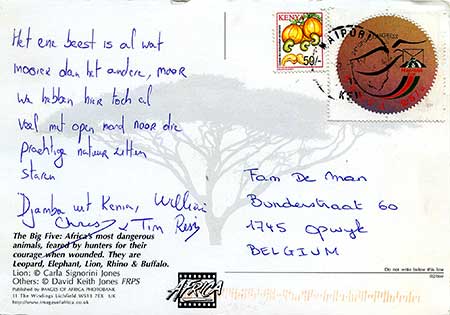 Het ene beest is al wat
mooier dan het andere, maar
we hebben hier toch al
veel met open mond naar die
prachtige natuur zitten
staren
Djambo uit Kenia, William
Chris & Tim
The Big Five: Africa's most dangerous
animals, feared by hunters for their
courage when wounded. They are
Leopard, Elephant, Lion, Rhino & Buffalo.
Lion: © Carla Signorini Jones
Others: © David Keith Jones FRPS
Published by IMAGES OF AFRICA PHOTOBANK
11 The Windings Lichfield WS13 7EX UK
http://www.imagesofafrica.co.uk
AFRICA
KENYA
50/-
Fam De Man
Bunderstraat 60
1745 Opwijk
BELGIUM
Do not write below this line